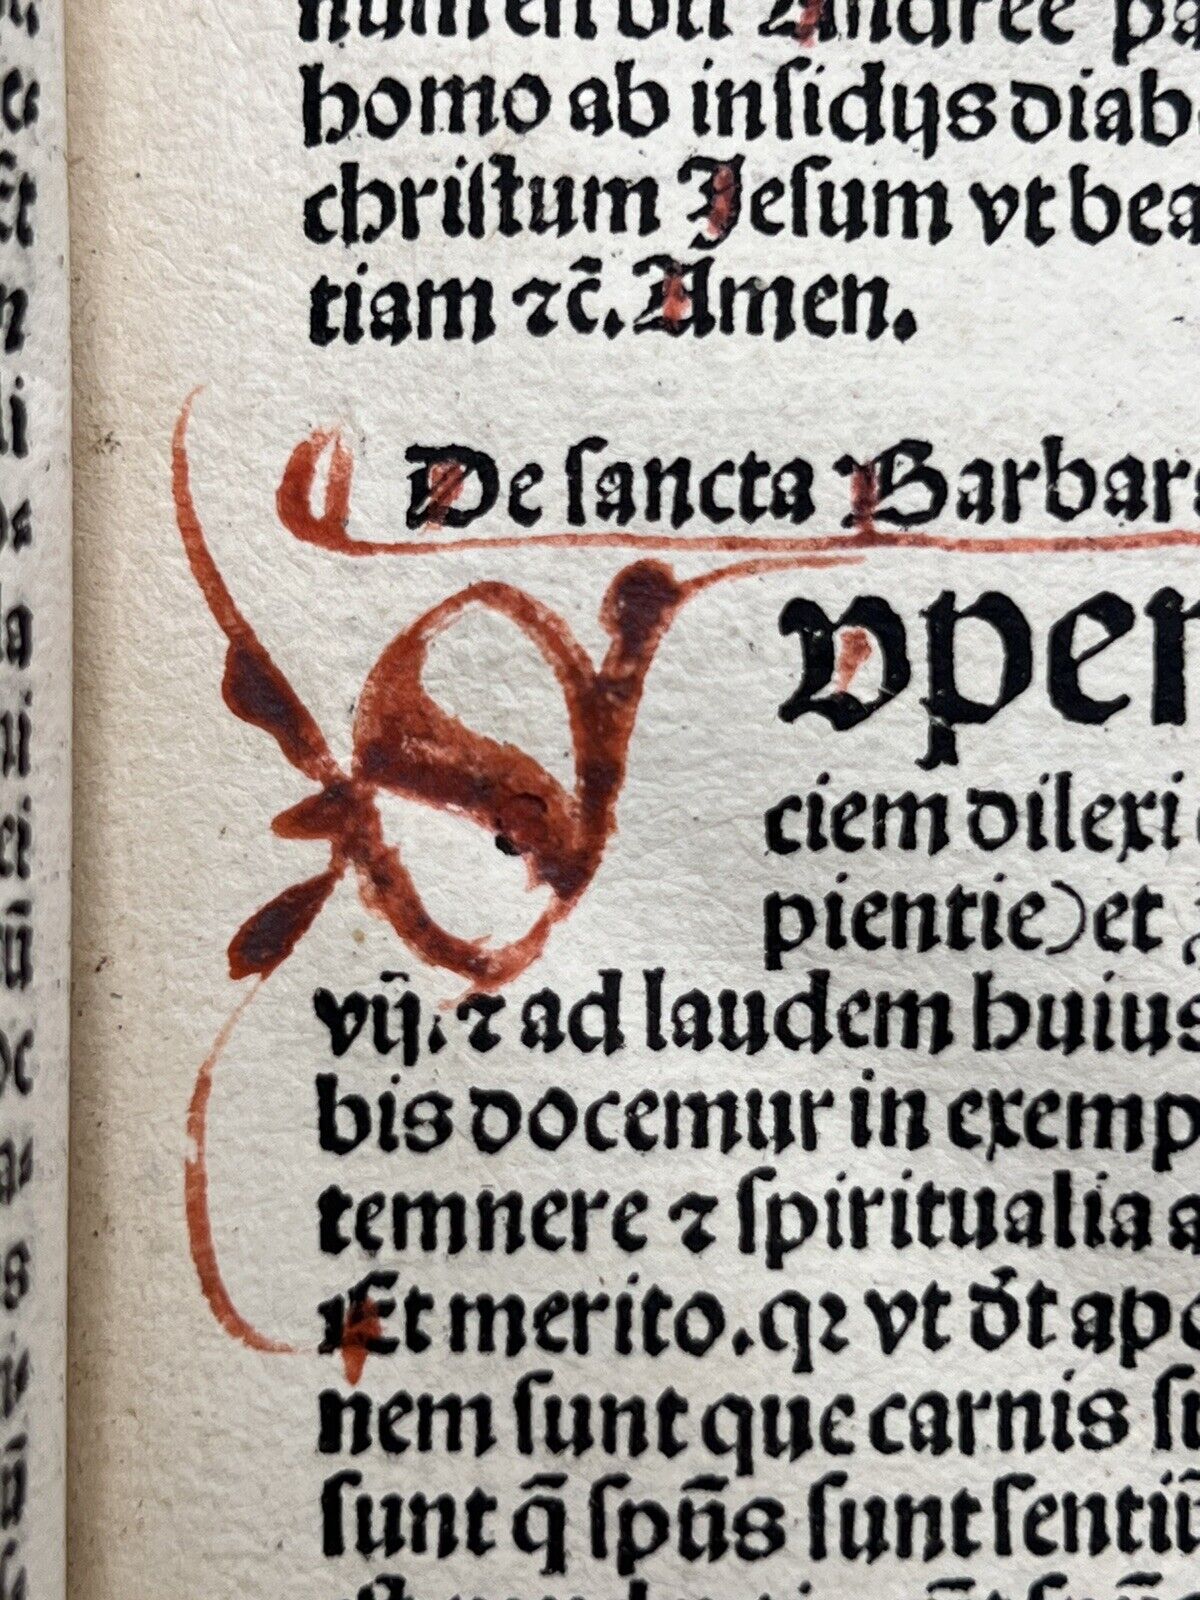 homo ab insidijs diab
christum Jesum vt bea
tiam ⁊c̄. Amen.
De sancta Barbar
S vper
ciem dilexi
pientie) et
vij. ⁊ ad laudem huius
bis docemur in exemp
temnere ⁊ spiritualia a
Et merito. qꝛ vt dt̄ apo
nem sunt que carnis
sunt q̄ spūs sunt sentiū